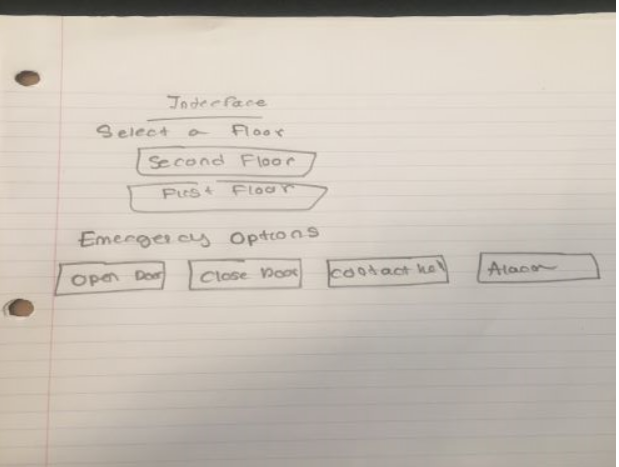 Interface
Select a Floor
Second Floor
First Floor
Emergency Options
Open Door Close Door Contact Alarm